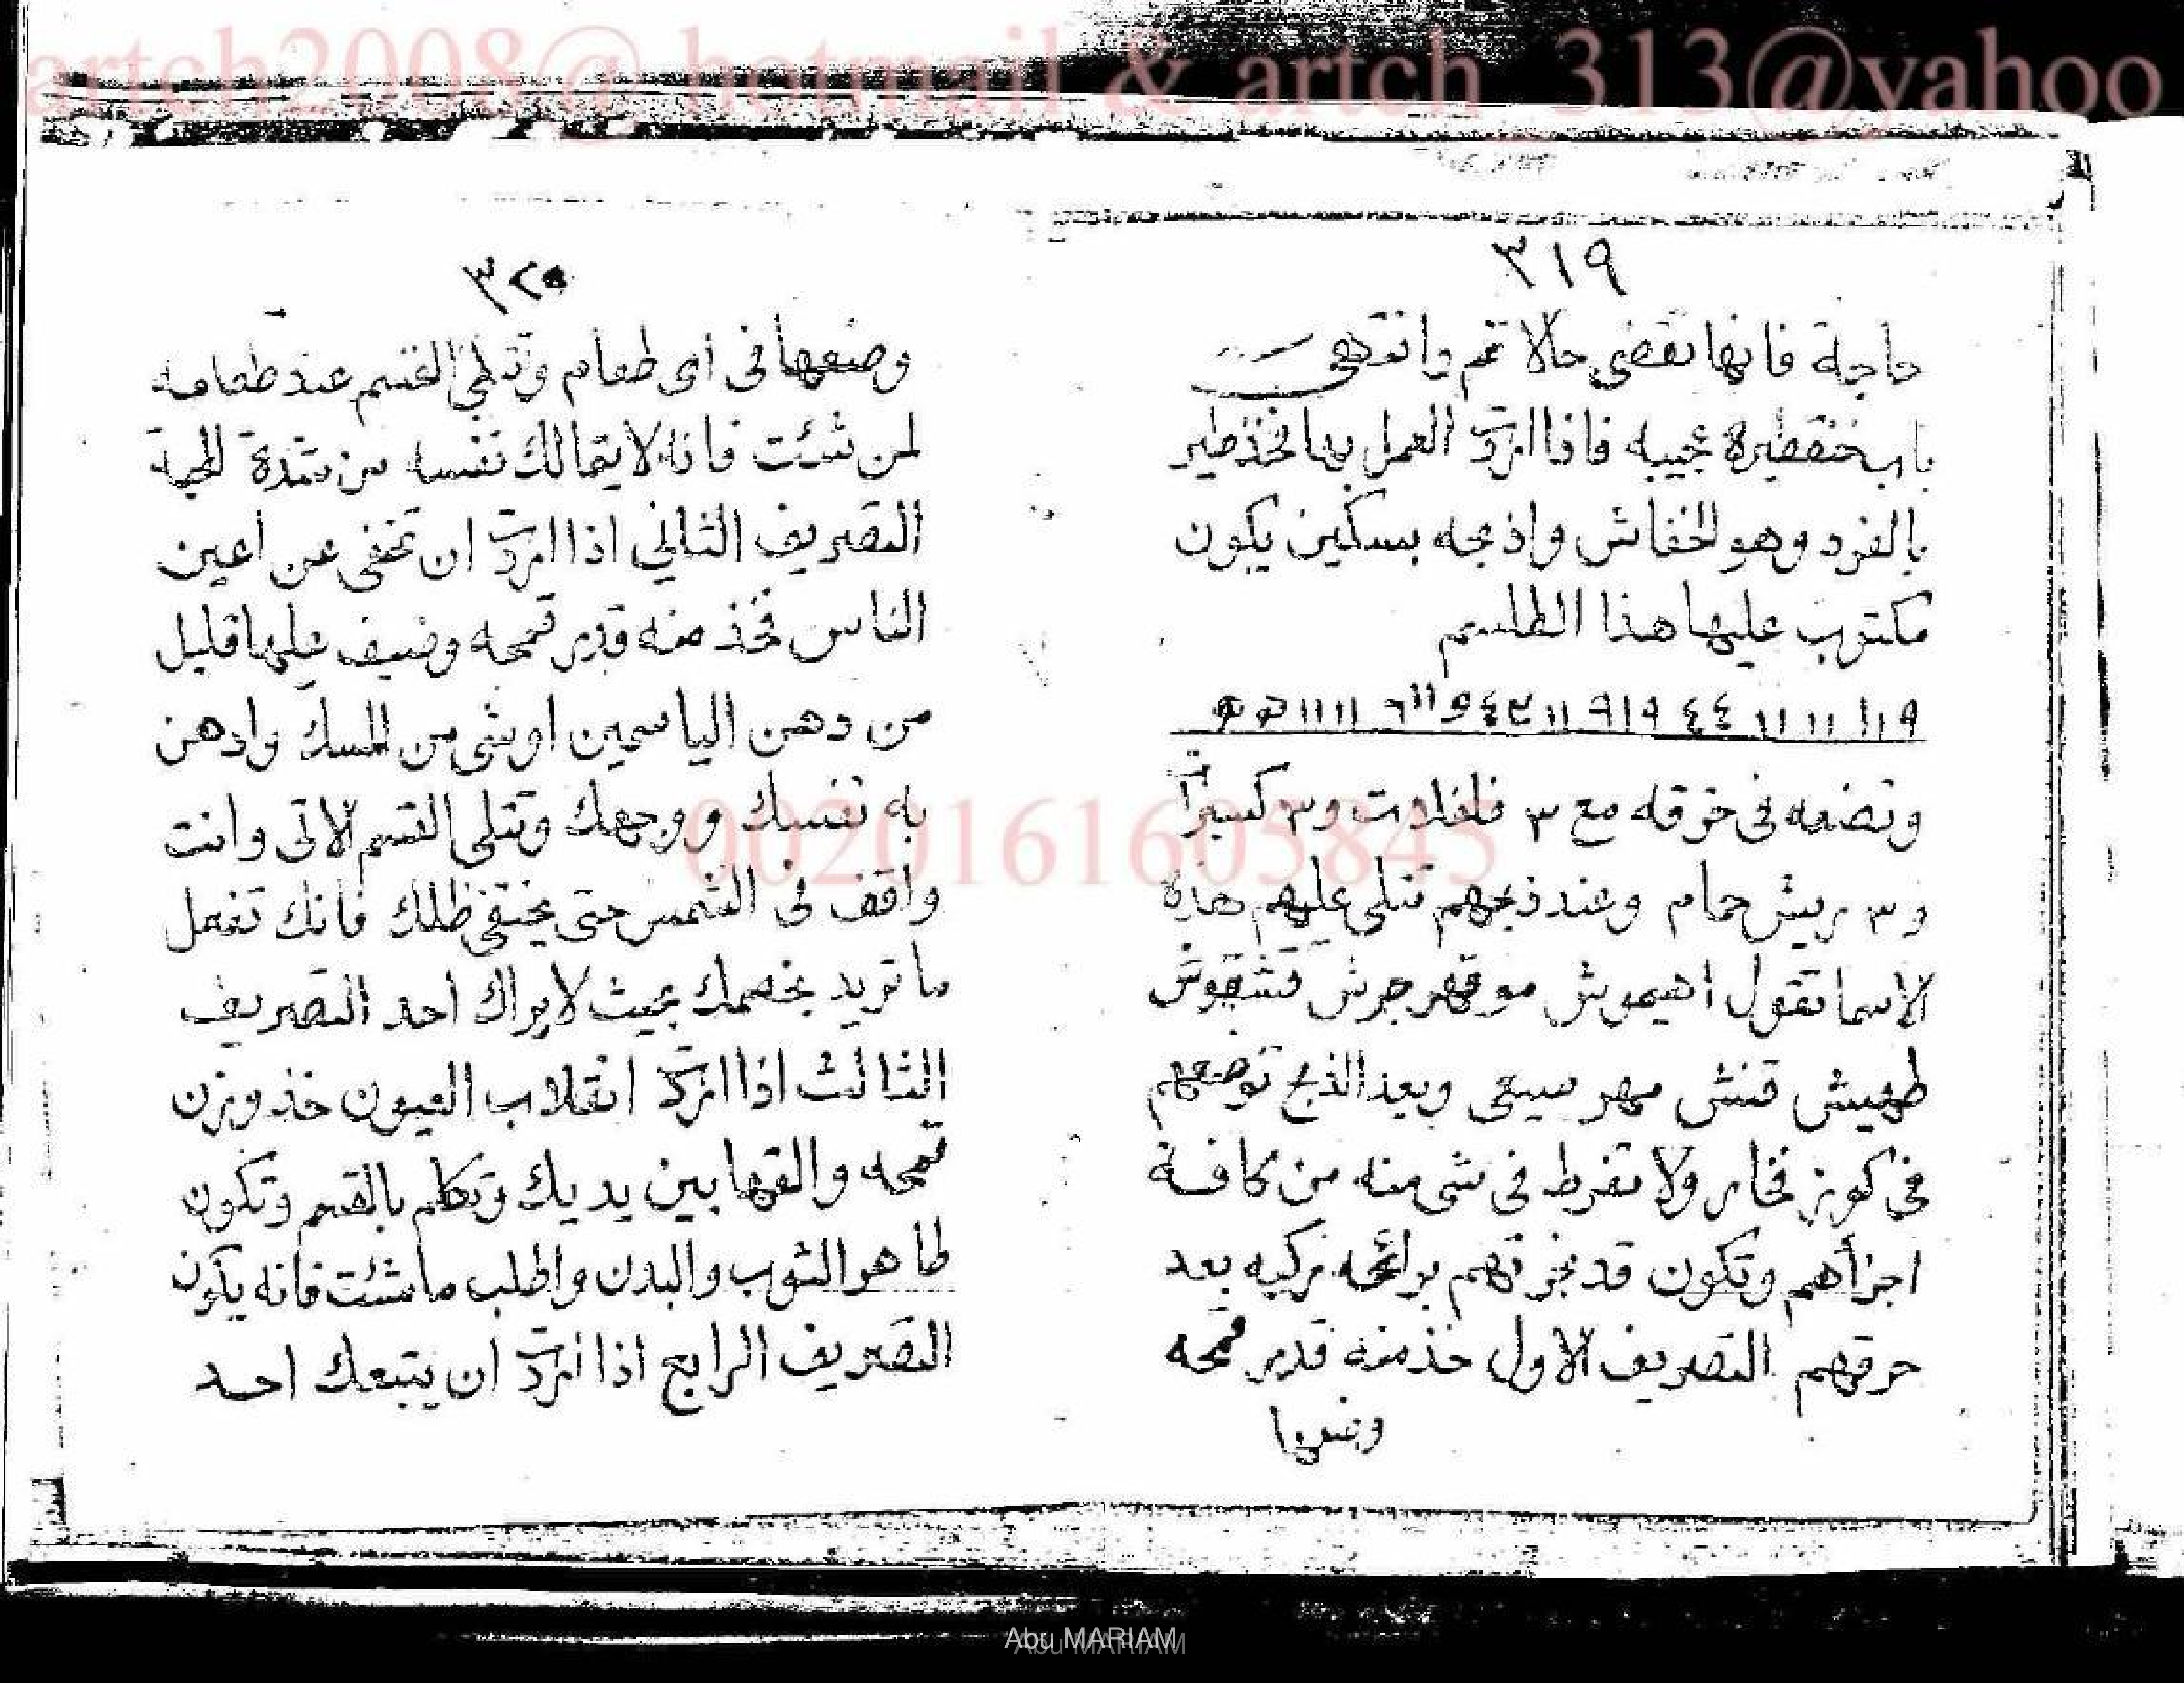 artch2008@ hotmail & artch_313@yahoo
٣١٩
حاجة فانها تقضى حالا تم وانتهى
باب خنقطيرة عجيبه فاذا اردت العمل بها فخذ طير
بالفرد وهو الخفاش واذبحه بسكين يكون
مكتوب عليها هذا الطلسم
ونضعه فى خرقه مع ٣ فلفلات و٣ كسبرات
و٣ ريش حمام وعند ذبحهم تتلى عليهم هذه
الاسما تقول اهيموش موقهر جرش قشقوش
طهيش قنش مهر سيعى وبعد الذبح توضعهم
فى كوز فخار ولا تفرط فى شى منه من كافة
اجزأهم وتكون قد بخرتهم برائحه زكيه بعد
حرقهم التصريف الاول خذ منه قدر قمحه
وضعها
٣٢٠
وضعها فى اى طعام وتتلى القسم عند طعامه
لمن شئت فانه لا يتمالك نفسه من شدة المحبة
التصريف الثانى اذا اردت ان تخفى عن اعين
الناس فخذ منه قدر قمحه وضيف عليها قليل
من دهن الياسمين اوشى من المسك وادهن
به نفسك ووجهك وتتلى القسم الاتى وانت
واقف فى الشمس حتى يختفى ظلك فانك تفعل
ما تريد بخصمك بحيث لا يراك احد التصريف
الثالث اذا اردت انقلاب العيون خذ وزن
قمحه والقها بين يديك وتكلم بالقسم وتكون
طاهر الثوب والبدن واطلب ما شئت فانه يكون
التصريف الرابع اذا اردت ان يتبعك احد
0020161605845
Abu MARIAM